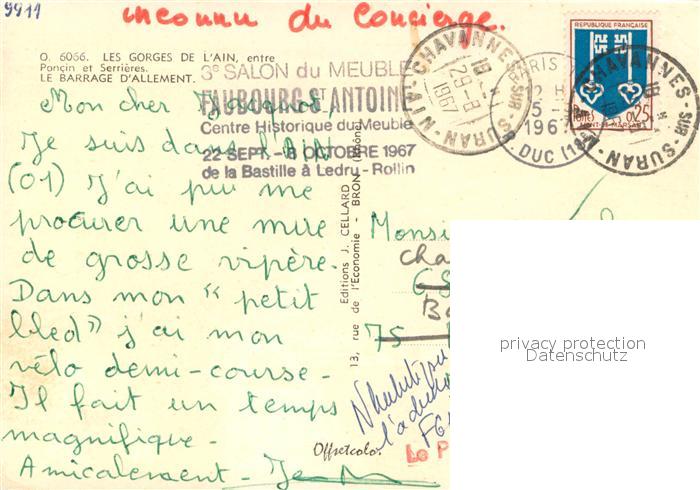 9911
inconnu du Concierge.
O. 6066. LES GORGES DE L'AIN, entre
Ponçin et Serrières.
LE BARRAGE D'ALLEMENT.
3e SALON du MEUBLE
FAUBOURG St ANTOINE
Centre Historique du Meuble
22 SEPT. - 8 OCTOBRE 1967
de la Bastille à Ledru-Rollin
CHAVANNES-SUR-SURAN
18 H
29-8
1967
AIN
PARIS
12 H
5-
1967
DUC (1
REPUBLIQUE FRANÇAISE
POSTES 0,25
MONT-DE-MARSAN
CHAVANNES-SUR-SURAN
Mon cher Jacquot,
Je suis dans l'AIN
(01) J'ai pu me
procurer une mue
de grosse vipère.
Dans mon "petit
bled" j'ai mon
vélo demi-course.
Il fait un temps
magnifique.
Amicalement
Editions J. CELLARD
13, rue de l'Economie - BRON (Rhône)
Offsetcolor
Monsie
Cha
68
Ba
75
N'habite pas
l'adresse
Lo P
privacy protection
Datenschutz